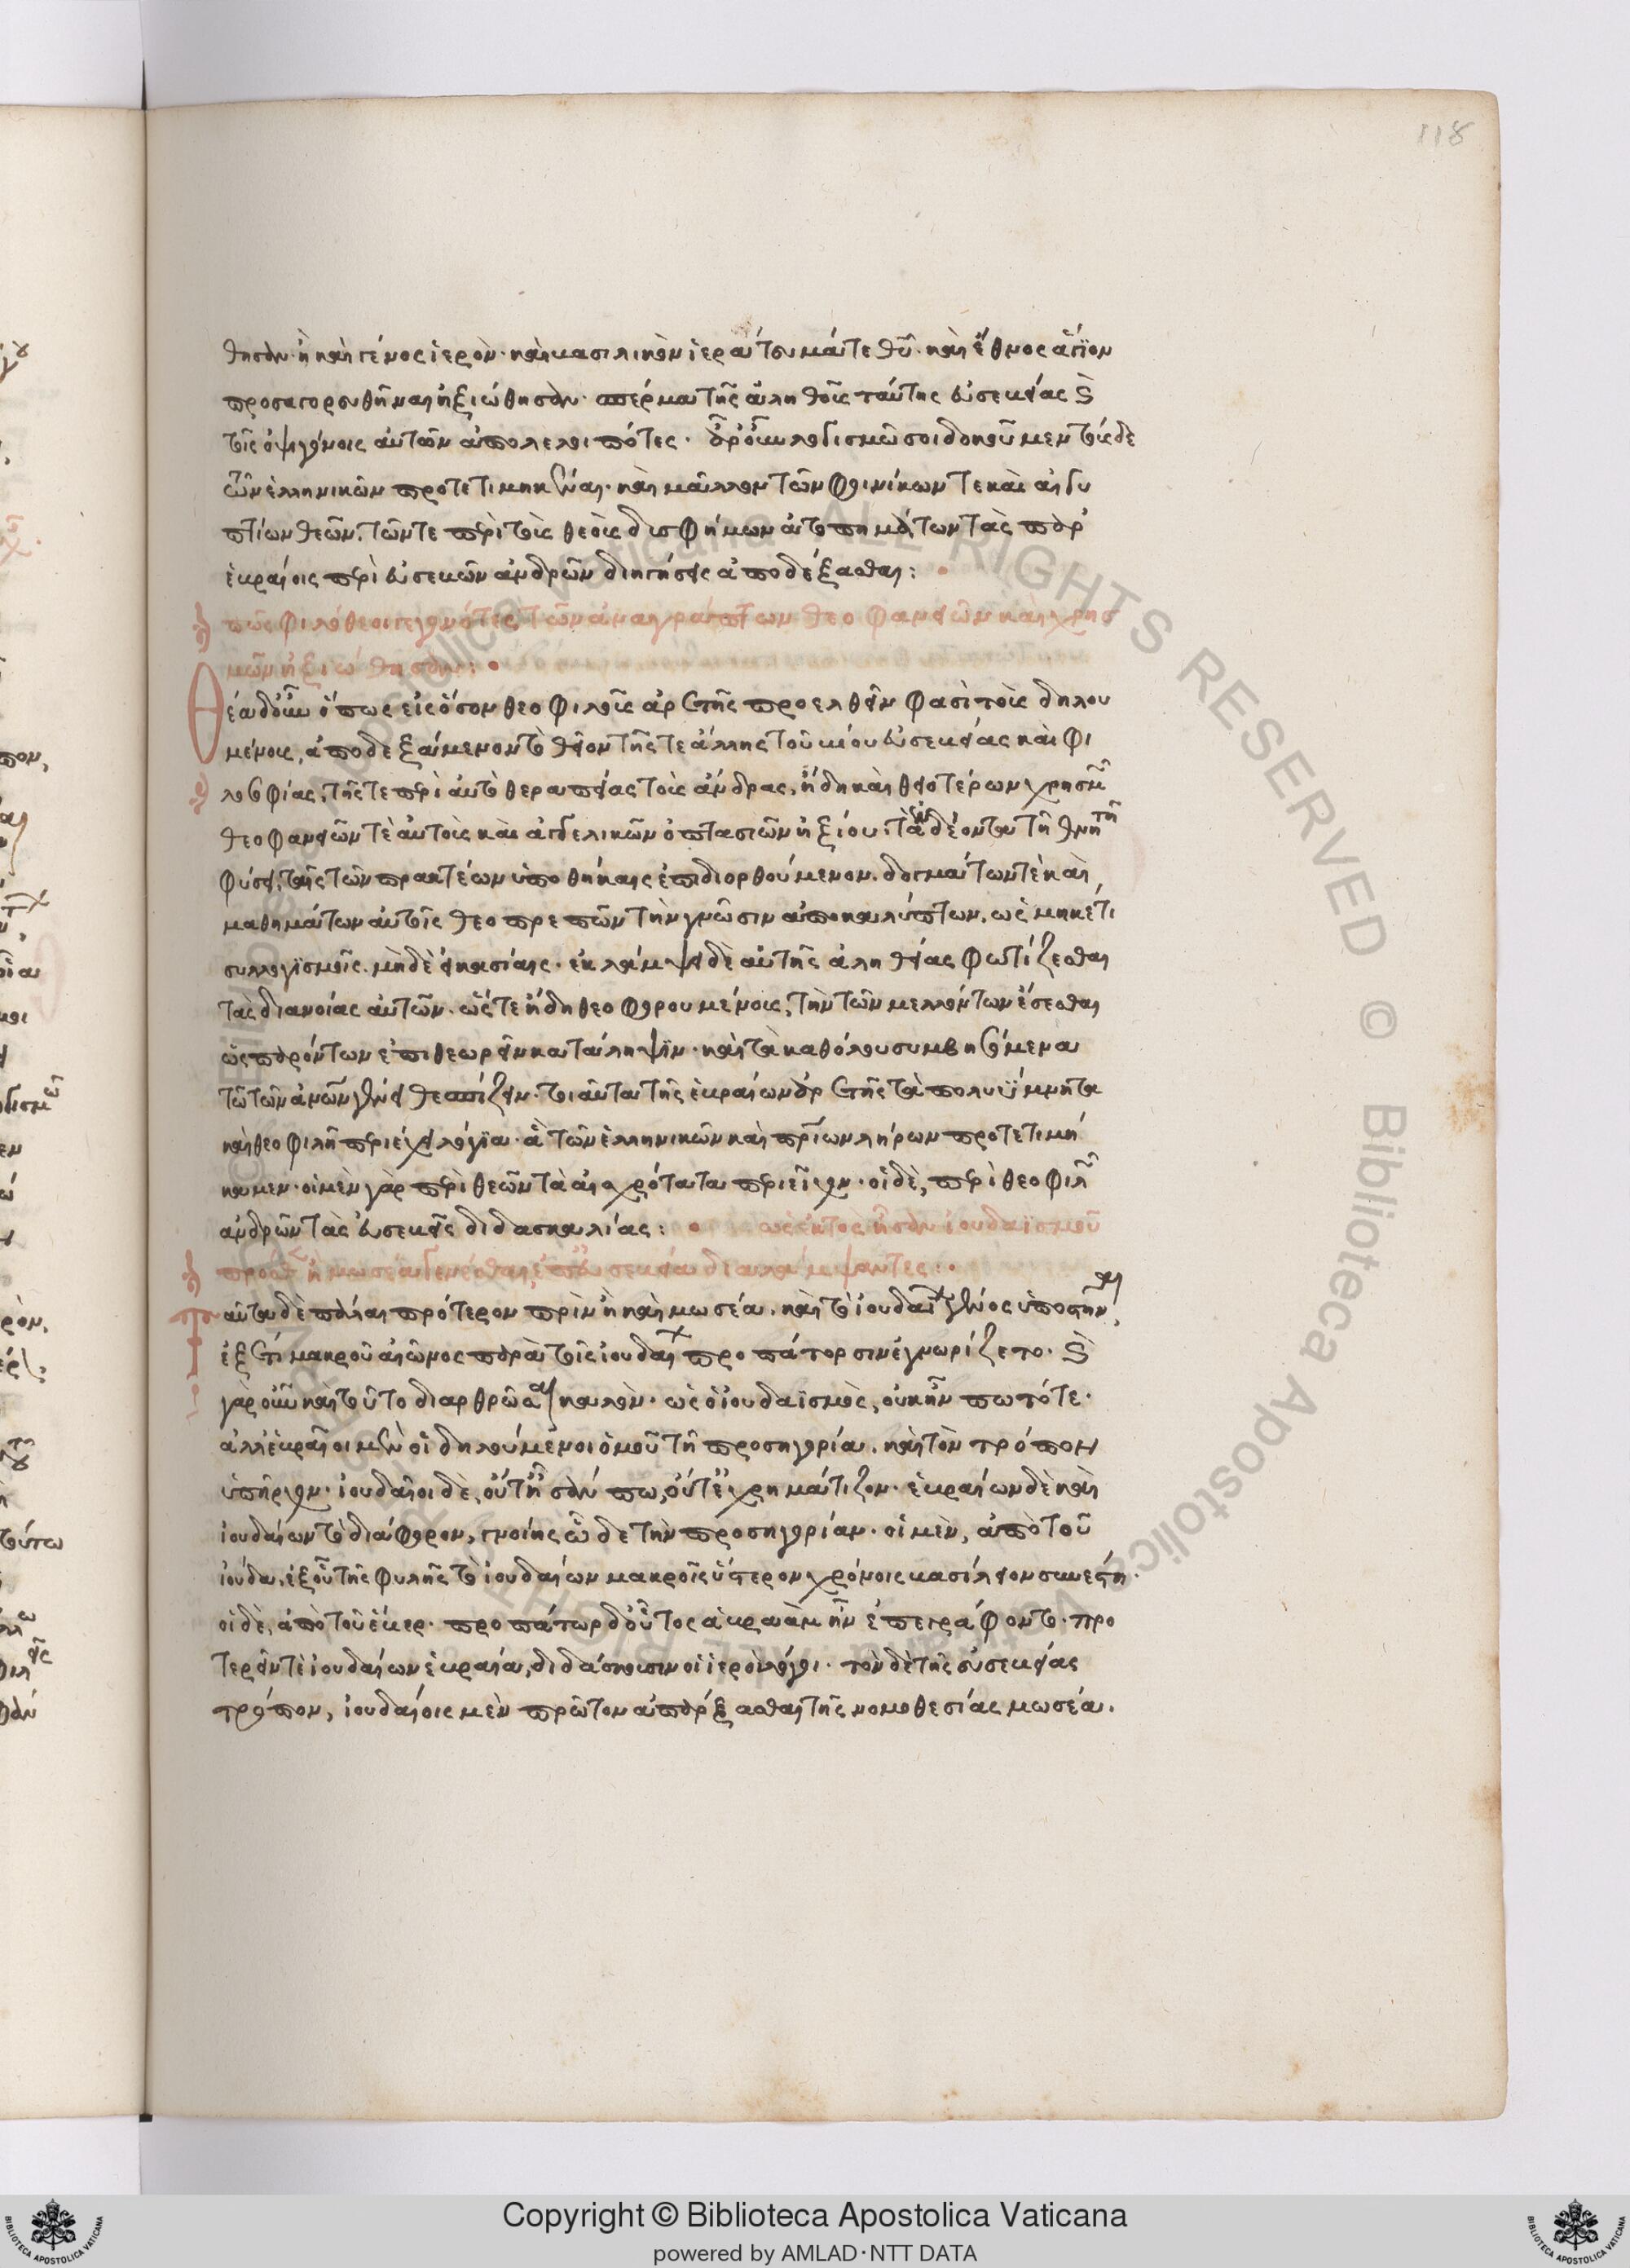 118
θησαν· ἢ καὶ γένος ἱερὸν· καὶ βασιλικὸν ἱεράτευμά τε θῦ· καὶ ἔθνος ἅγιον
προσαγορευθῆναι ἠξιώθησαν· σπέρμα τῆς ἀληθοῦς ταύτης εὐσεβείας καὶ
τοῖς ὀψιγόνοις αὐτῶν ἀπολελοιπότες· ἆρ' οὖν λογισμῶ σοι δοκοῦμεν τούσδε
τῶν ἑλληνικῶν προτετιμηκέναι· καὶ μᾶλλον τῶν φοινίκων τε καὶ αἰγυ
πτίων θεῶν· τῶν τε περὶ τοὺς θεοὺς δυσφήμων ἀτοπημάτων τὰς παρ'
ἑβραίοις περὶ εὐσεβῶν ἀνδρῶν διηγήσεις ἀποδέξασθαι:
πῶς φιλόθεοι γεγονότες τῶν ἀναγράπτων θεοφανειῶν καὶ χρησ
μῶν ἠξιώθησαν:
Θέα δ' οὖν ὅπως εἰς ὅσον θεοφιλοῦς ἀρετῆς προελθεῖν φασὶ τοὺς δηλου
μένους, ἀποδεξάμενον τὸ θεῖον τῆς τε ἄλλης τοῦ βίου εὐσεβείας καὶ φι
λοσοφίας, τῆς τε περὶ αὐτὸ θεραπείας τοὺς ἄνδρας, ἤδη καὶ θειοτέρων χρησμῶν
θεοφανειῶν τὲ αὐτοὺς καὶ ἀγγελικῶν ὀπτασιῶν ἠξίου· τὰ δέοντα τῆ θνητῆ
φύσει, ταῖς τῶν πρακτέων ὑποθήκαις ἐπιδιορθούμενον. δογμάτων τὲ καὶ
μαθημάτων αὐτοῖς θεοπρεπῶν τὴν γνῶσιν ἀποκαλύπτων, ὡς μηκέτι
συλλογϊσμοῖς. μηδὲ εἰκασίαις· ἐκλάμψει δὲ αὐτῆς ἀληθείας φωτίζεσθαι
τὰς διανοίας αὐτῶν. ὥστε ἤδη θεοφορουμένους, τὴν τῶν μελλόντων ἔσεσθαι
ὡς παρόντων ἐπιθεωρεῖν κατάληψϊν· καὶ τὰ καθόλου συμβησόμενα
τῶ τῶν ἀνῶν γένει θεσπίζειν· τοιαῦτα τῆς ἑβραίων ἀρετῆς τὰ πολυΰμνητα
καὶ θεοφιλῆ περιέχει λόγϊα· ἃ τῶν ἑλληνικῶν καὶ πατρίων λήρων προτετιμή
καμεν· οἱ μὲν γὰρ περὶ θεῶν τὰ αἰσχρότατα περιεῖχον· οἱ δὲ, περὶ θεοφιλῶν
ἀνδρῶν τὰς εὐσεβεῖς διδασκαλίας: ὡς ἐκτὸς ἦσαν ἰουδαϊσμοῦ
πρὸ τοῦ ἢ μωσέα γενέσθαι, ἐπ' εὐσεβεία διαλάμψαντες:
Ταῦτα δὲ πάλαι πρότερον πρὶν ἢ καὶ μωσέα. καὶ τὸ ἰουδαίων γένος ὑποστῆναι,
ἐξ ἔτι μακροῦ αἰῶνος παρὰ τοῖς ἰουδαίων προπάτορσιν ἐγνωρίζετο· καὶ
γὰρ οὖν καὶ τοῦτο διαρθρῶσαι καλὸν· ὡς ὁ ἰουδαϊσμὸς, οὐκ ἦν πωπότε·
ἀλλ' ἑβραῖοι μὲν οἱ δηλούμενοι ὁμοῦ τῆ προσηγορία. καὶ τὸν τρόπον
ὑπῆρχον· ἰουδαῖοι δὲ, οὔτ' ἦσάν πω, οὔτ' ἐχρημάτιζον· ἑβραίων δὲ καὶ
ἰουδαίων τὸ διάφορον, γνοίης ὧδε τὴν προσηγορίαν· οἱ μὲν, ἀπὸ τοῦ
ἰούδα, ἐξ οὗ τῆς φυλῆς τὸ ἰουδαίων μακροῖς ὕστερον χρόνοις βασίλειον συνέστη·
οἱ δὲ, ἀπὸ τοῦ ἕβερ· προπάτωρ δ' οὗτος ἀβραὰμ ἦν ἐπεγράφοντο· προ
τερεῖν τὲ ἰουδαίων ἑβραία, διδάσκουσιν οἱ ἱεροὶ λόγοι· τὸν δὲ τῆς εὐσεβείας
τρόπον, ἰουδαίοις μὲν πρῶτον ἀπάρξασθαι τῆς νομοθεσίας μωσέα.
RIGHTS RESERVED © Biblioteca Apostolica Vaticana
Copyright © Biblioteca Apostolica Vaticana
powered by AMLAD·NTT DATA